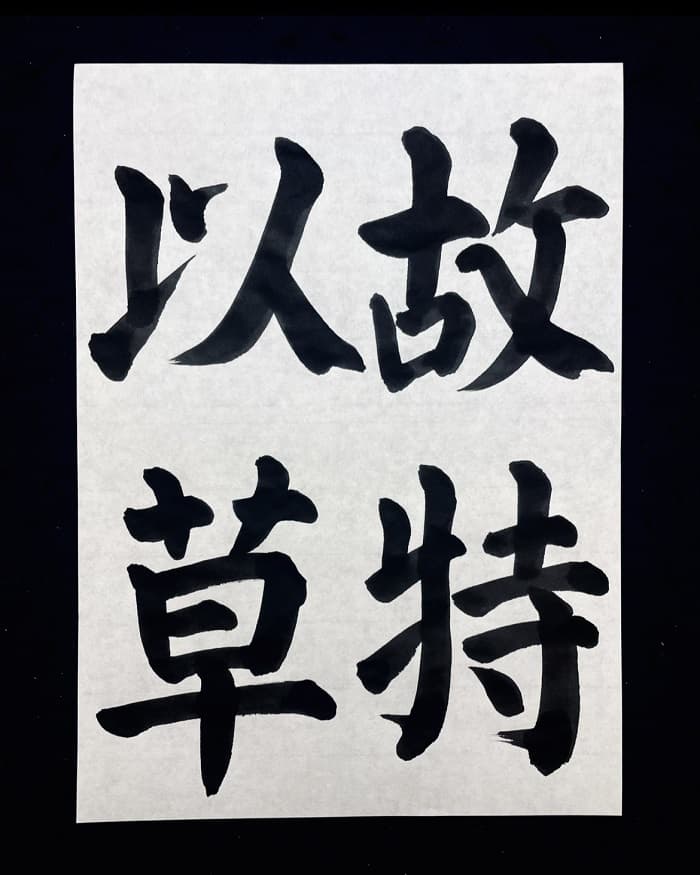 故特
以草